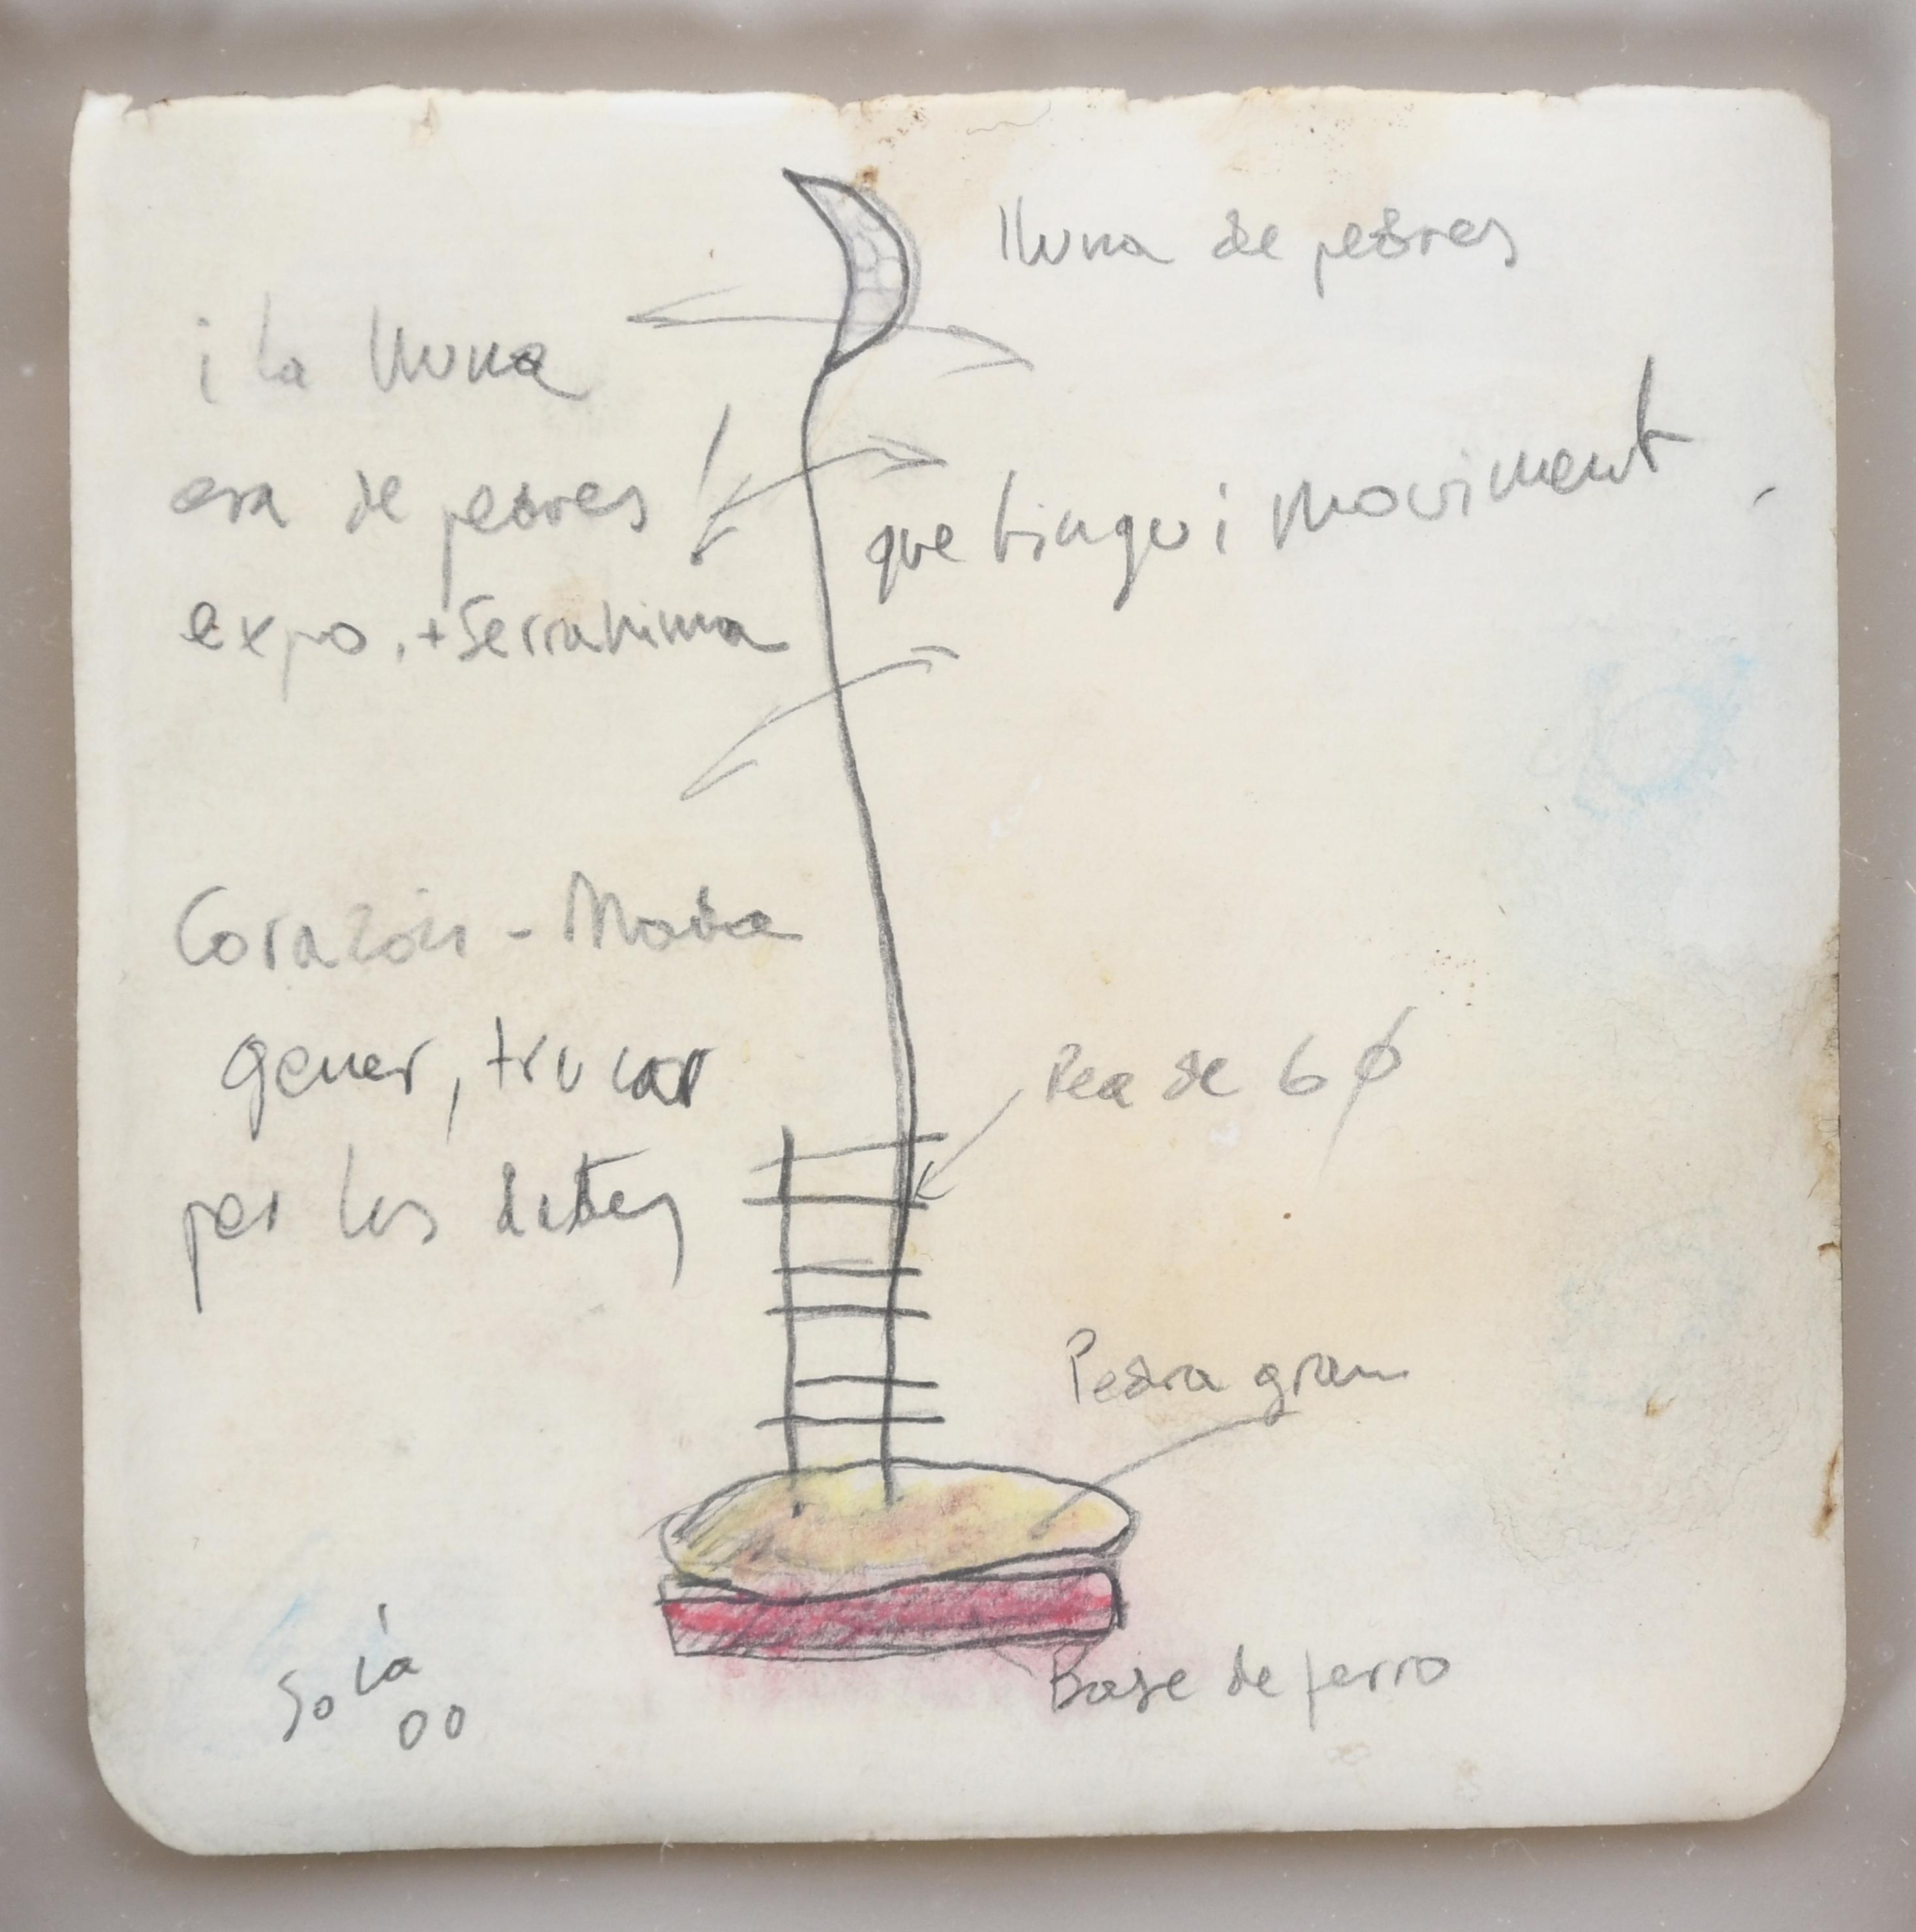 lluna de pedres
i la lluna
era de pedres!
expo. + Serrahima
que tingui moviment
Corazón - Moda
gener, trucar
per les dates
Rea de 6 ø
Pedra gran
Base de ferro
Solà
00